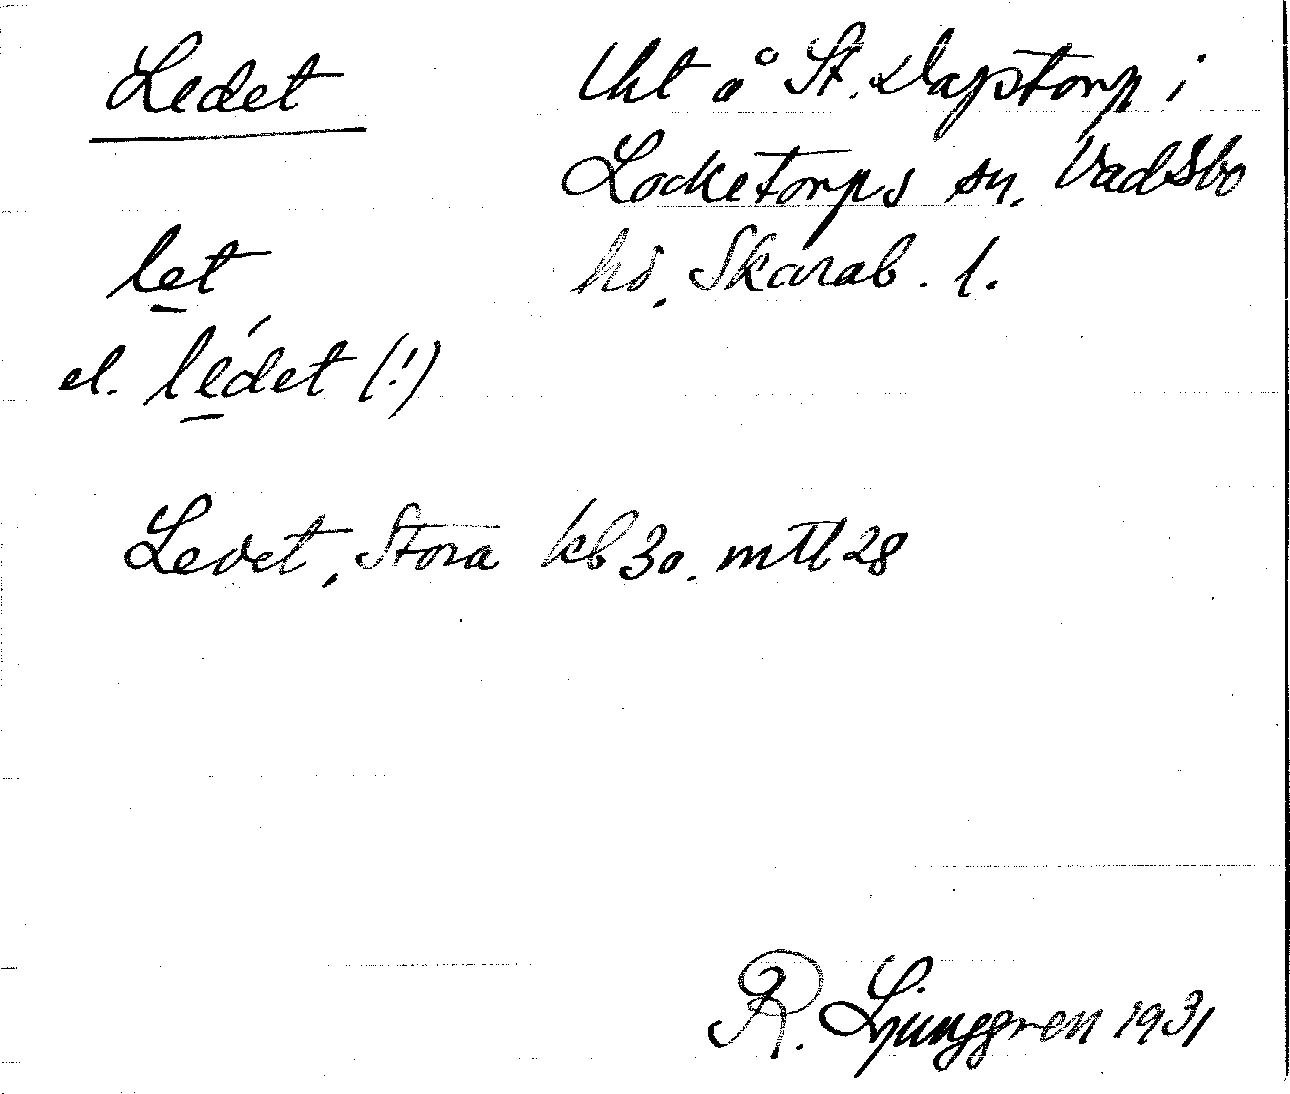 Ledet
lht å St. Dagstorp i
Locketorps sn. Vadsbo
hd. Skarab. l.
le̲t
el. lé̲det (!)
Ledet, Stora kb 30. mtl 28
R. Ljunggren 1931